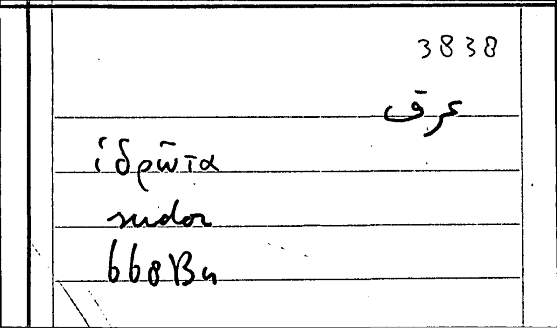 3838
عرق
ἱδρῶτα
sudor
668Bu